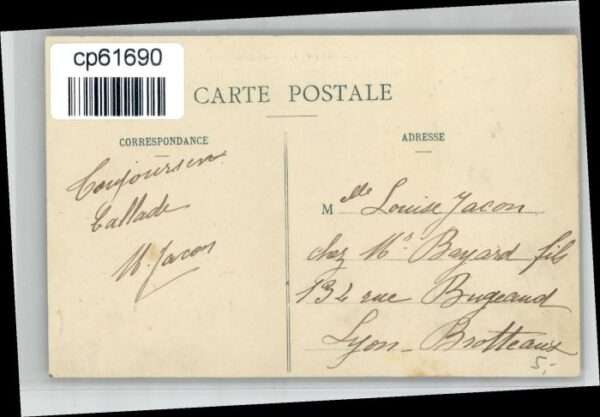 cp61690
CARTE POSTALE
CORRESPONDANCE
ADRESSE
Toujours en
ballade
M. Jacon
Melle Louise Jacon
chez Mr Bayard fils
134 rue Bugeaud
Lyon-Brotteaux
5,-